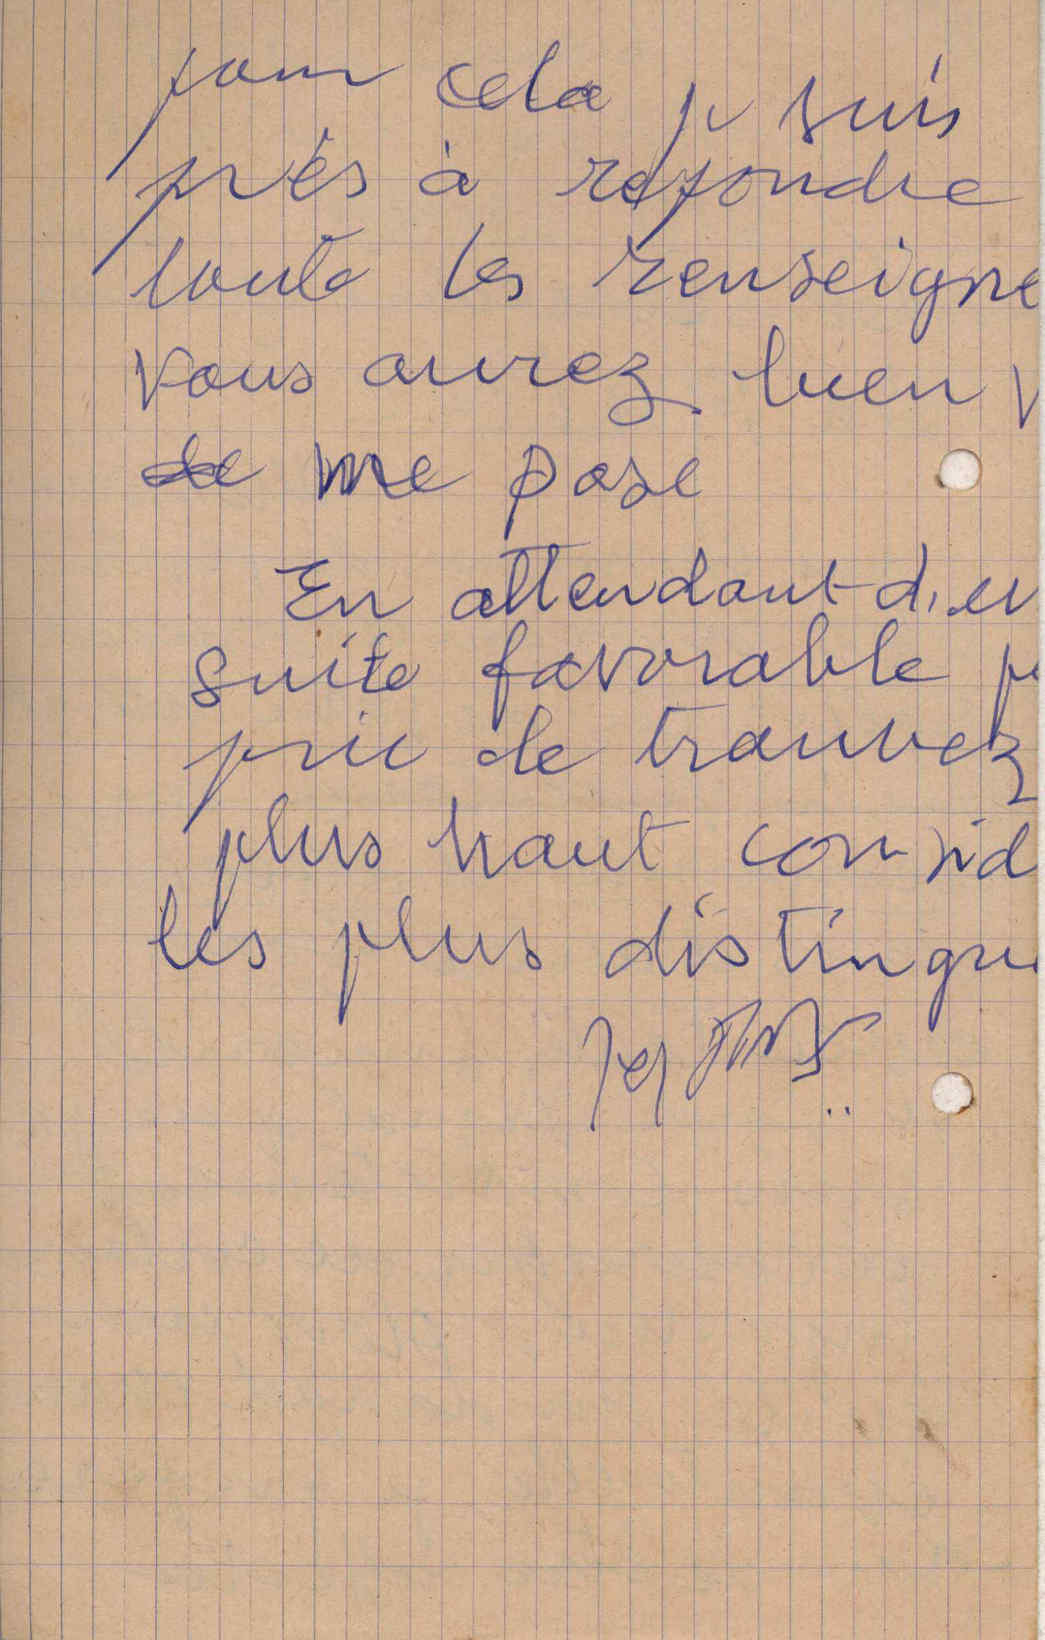 pour cela je suis
près à repondre
toute les renseigne
vous aurez bien v
de me pose
En attendant d'en
suite favorable je
prie de trouvez
plus haut consid
les plus distingu